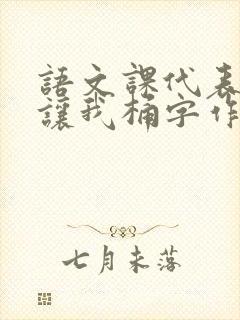 語文課代表
讓我桶字作
七月未落